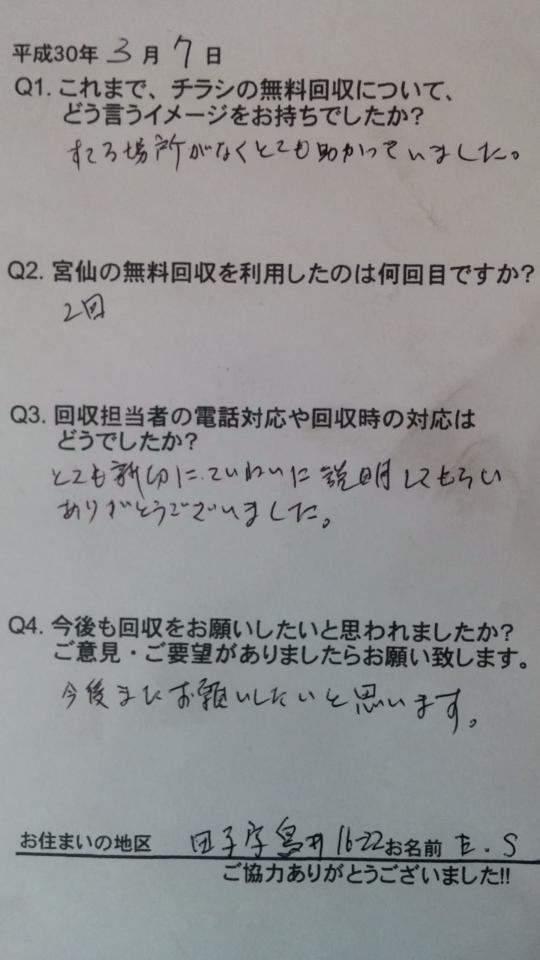 平成30年 3月 7日
Q1. これまで、チラシの無料回収について、
どう言うイメージをお持ちでしたか?
すてる場所がなくとても助かっていました。
Q2. 宮仙の無料回収を利用したのは何回目ですか?
2回
Q3. 回収担当者の電話対応や回収時の対応は
どうでしたか?
とても親切に、ていねいに説明してもらい
ありがとうございました。
Q4. 今後も回収をお願いしたいと思われましたか?
ご意見・ご要望がありましたらお願い致します。
今後またお願いしたいと思います。
お住まいの地区 田子字鳥井16-22 お名前 E.S
ご協力ありがとうございました!!